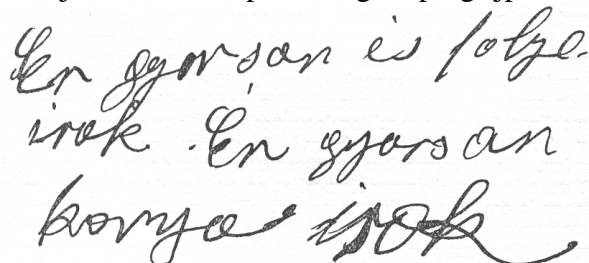 En gyorsan és folye-
irok. En gyorsan
konya irok